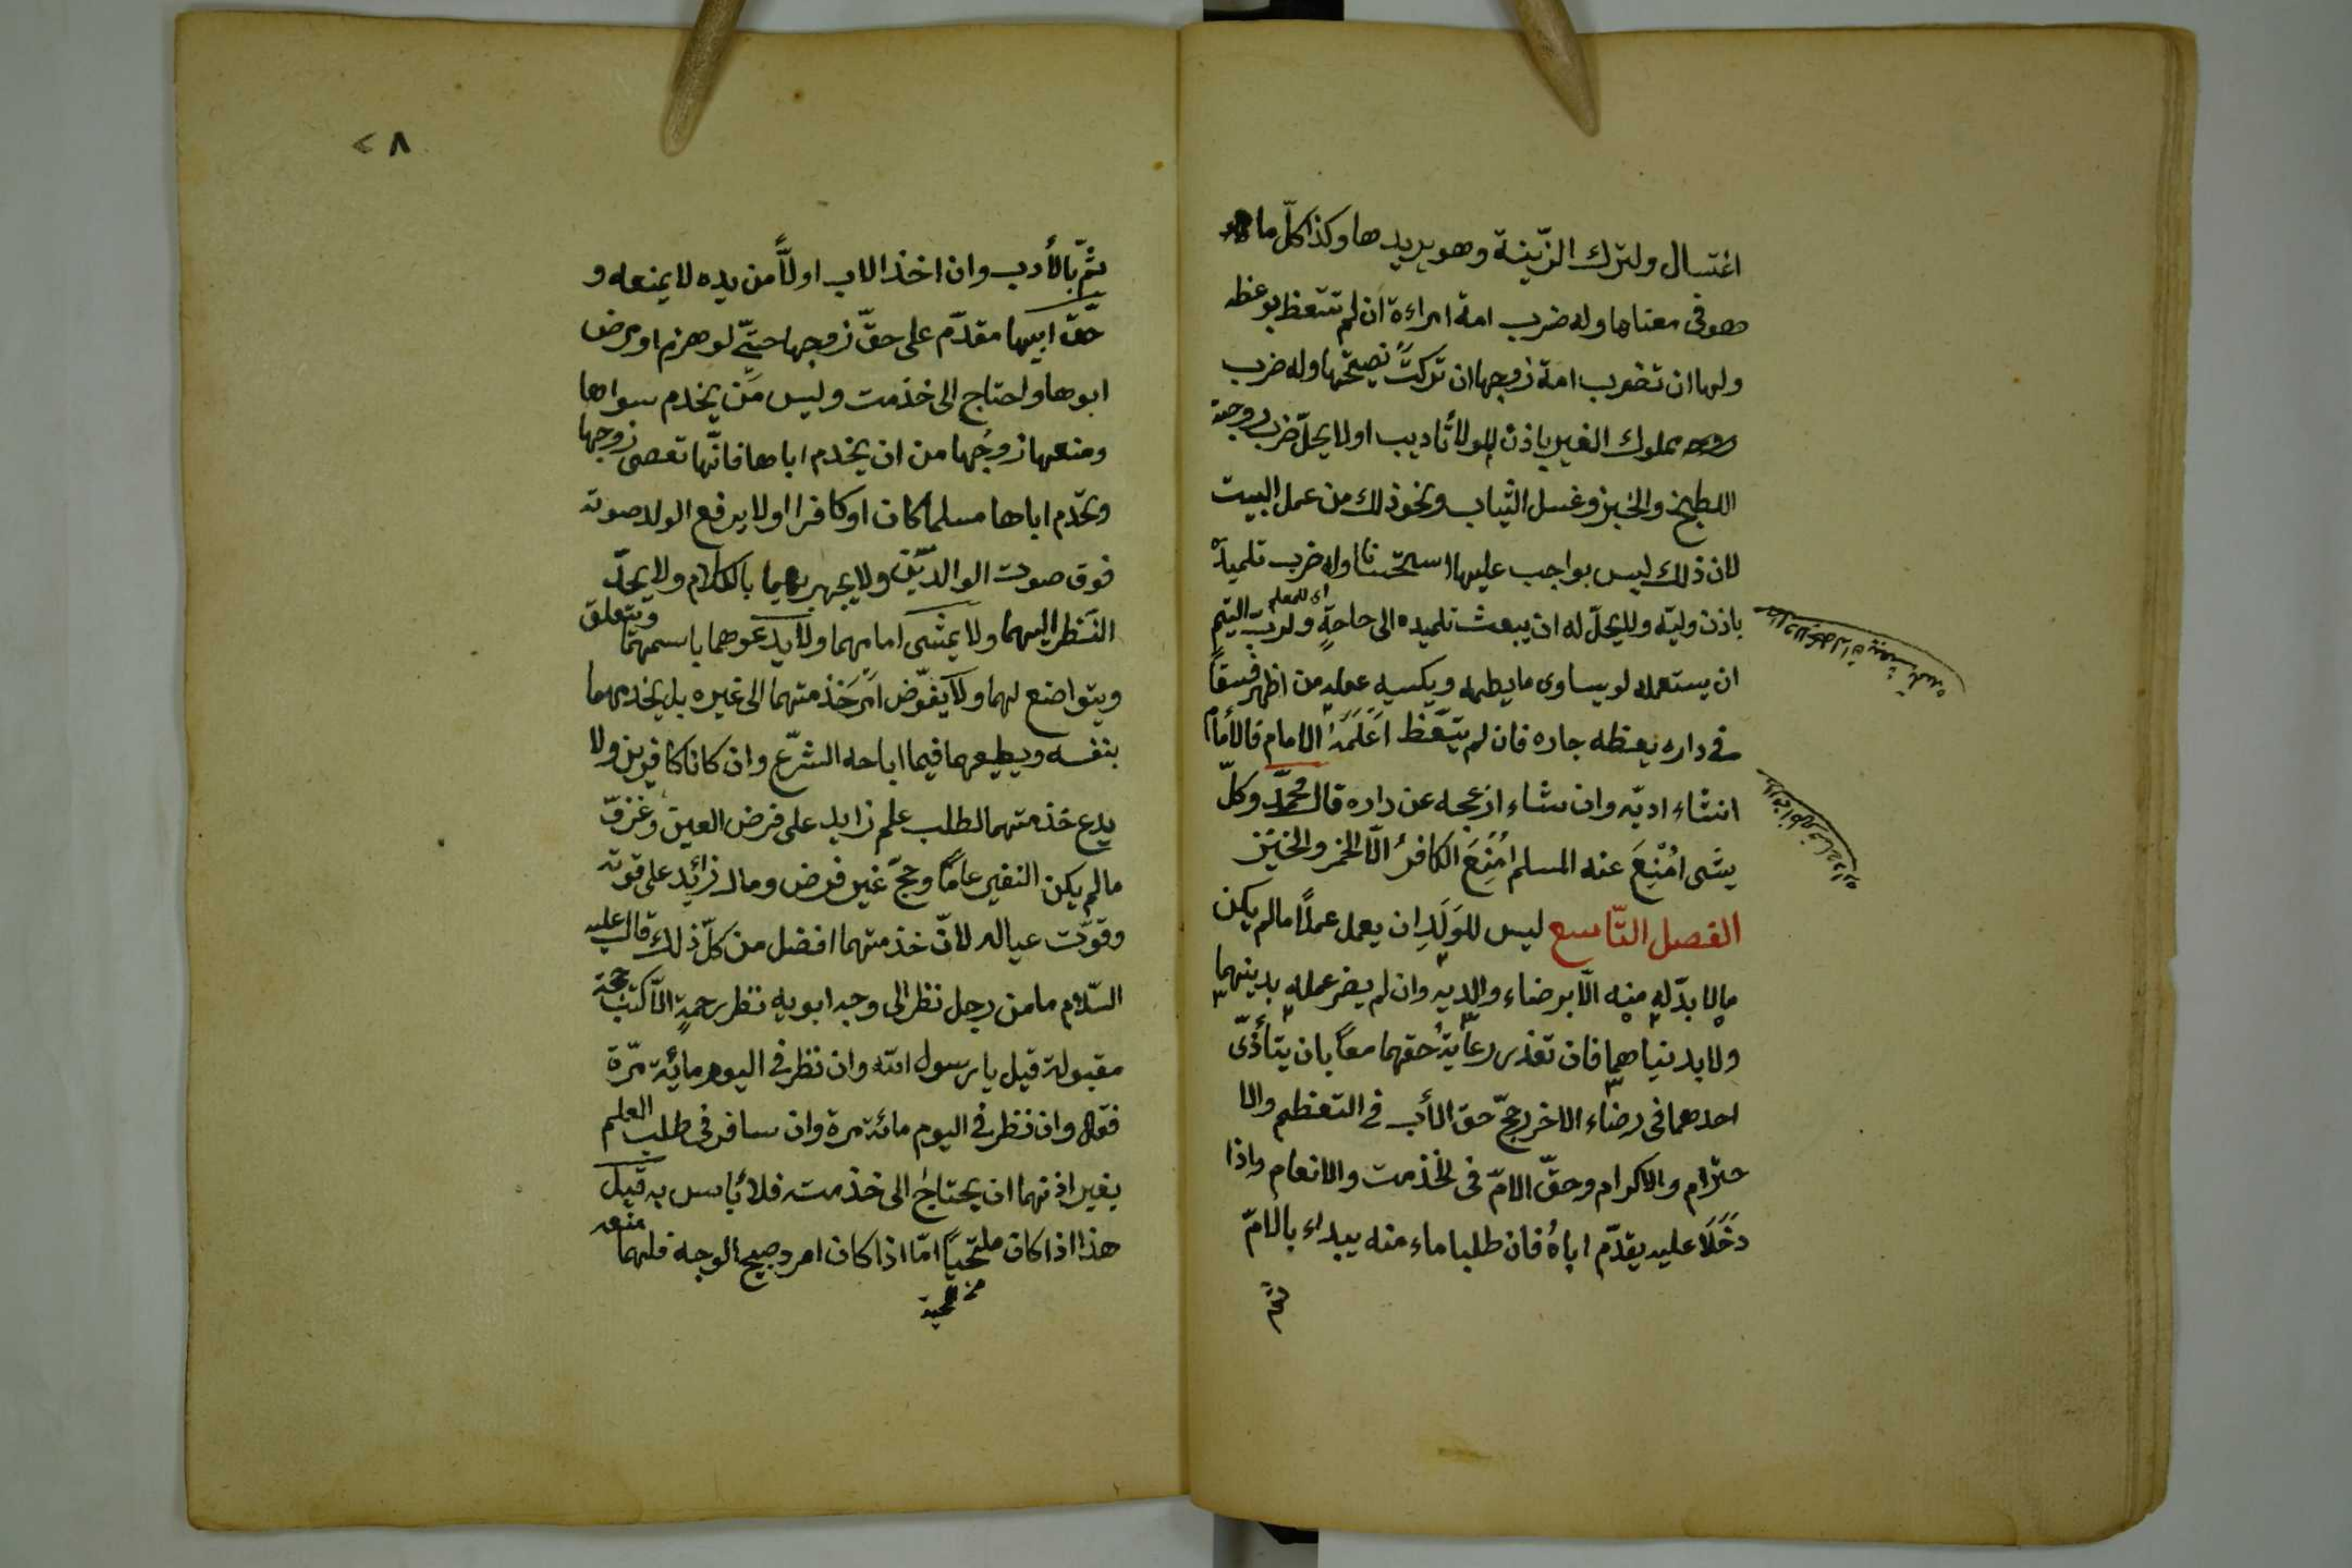 اغتسال ولترك الزّينة وهو يريدها وكذا كلّ ما
هو فى معناها وله ضرب امة امراءة ان لم تتعظ بوعظه
ولها ان تضرب امة زوجها ان تركتْ نصيحتها وله ضرب
مملوك الغير باذن المولا تأديب اولا يحلّ ضرب زوجة
الطبخ والخبز وغسل الثياب ونحو ذلك من عمل البيت
لان ذلك ليس بواجب عليها استحسانا وله ضرب تلميذه
باذن وليّه ولا يحلّ له ان يبعث تلميده الى حاجةٍ ولربّ اليتيم
اى للمعلم
ان يستعمله لو يساوى ما يطعمه ويكسيه عمله من اظهر فسقاً
فى داره يعظه جاره فان لم يتّعظ اعلمه الامام فالأمام
انشاء ادبّه وان شاء ازعجه عن داره قال محمّد وكلّ
شىء امُنِعَ عنه المسلم امُنِعَ الكافرُ الّا الخمر والخنزير
الفصل التّاسع ليس للوَلَدِ ان يعمل عملاً ما لم يكن
ما لا بدّ له منه الّا برضاء والديه وان لم يضر عمله بدينهما
ولا بدنياهما فان تعذر رعايةُ حقهما معاً بان يتأذّى
احدهما فى رضاء الاخر رجّح حق الأب فى التعظم والا
حترام والاكرام وحقّ الامّ فى الخذمت والانعام واذا
دَخَلَا عليه يقدّم اباهُ فان طلبا ماء منه يبداء بالامّ
ثمّ
٢٨
ثمّ بالأدب وان اخذ الاب اولاً من يده لا يمنعه و
حقّ ابيها مقدّم على حقّ زوجها حتّى لو هرم او مرض
ابوها واحتاج الى خذمت وليس مَن يخدم سواها
ومنعها زوجُها من ان يخدم اباها فانّها تعصى زوجها
وتخدم اباها مسلما كان او كافرا اولا يرفع الولد صوته
فوق صوت الوالدَين ولا يجهر بهما بالكلام ولا يحدّ
النّظر اليهما ولا يمشى امامهما ولا يدعوهما باسمهما ويتعلق
ويتواضع لهما ولا يفوّض امر خذمتهما الى غيره بل يخدمهما
بنفسه ويطيعهما فيما اباحه الشّرع وان كانا كافرين ولا
يدع خذمتهما لطلب علم زايد على فرض العين وغزوٍ
مالم يكن النفير عامّاً وحجّ غير فرض ومال زائد على قوته
وقوّت عياله لانّ خذمتهما افضل من كلّ ذلك قال عليه
السّلام ما من رجل نظر الى وجه ابويه نظر رحمةٍ الّا كتب حجة
مقبولة قيل يا رسول الله وان نظر فى اليوم مائة مرّة
فقال وان نظر فى اليوم مائة مرة وان سافر فى طلب العلم
بغير اذنهما ان يحتاج الى خذمته فلا بأس به قيل
هذا اذا كان ملتحياً امّا اذا كان امرد صبيح الوجه فلهما منعه
من لحية